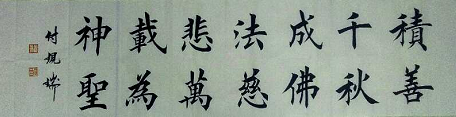 積善
千秋
成佛
法慈
悲萬
載為
神聖
付規瑞